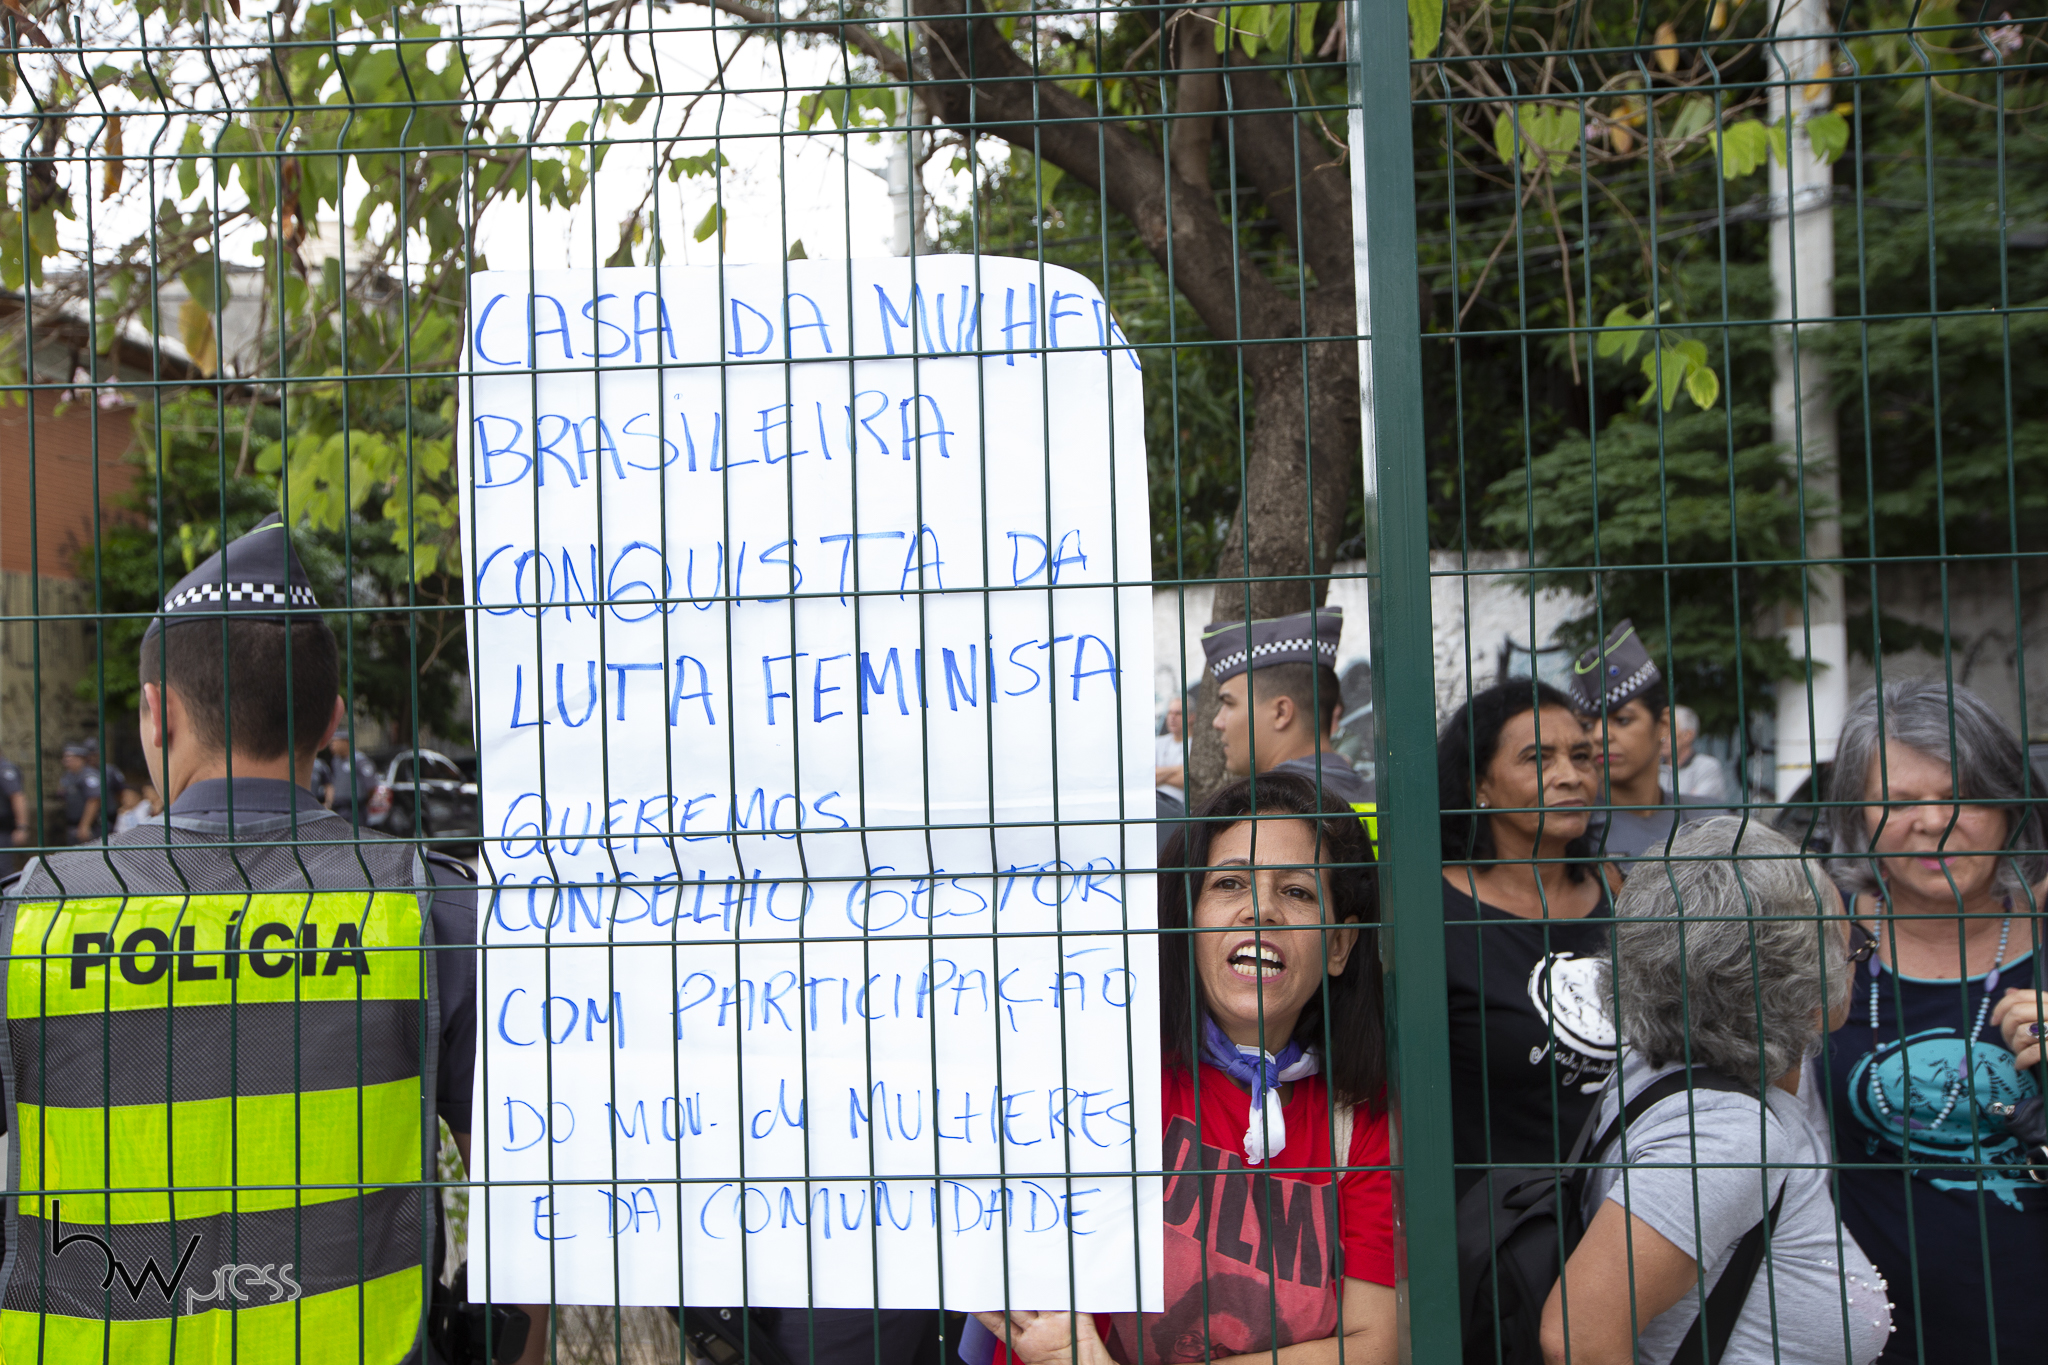 CASA DA MULHER
BRASILEIRA
CONQUISTA DA
LUTA FEMINISTA
QUEREMOS
CONSELHO GESTOR
COM PARTICIPAÇÃO
DO MOV. de MULHERES
E DA COMUNIDADE
POLÍCIA
DILM
bw press